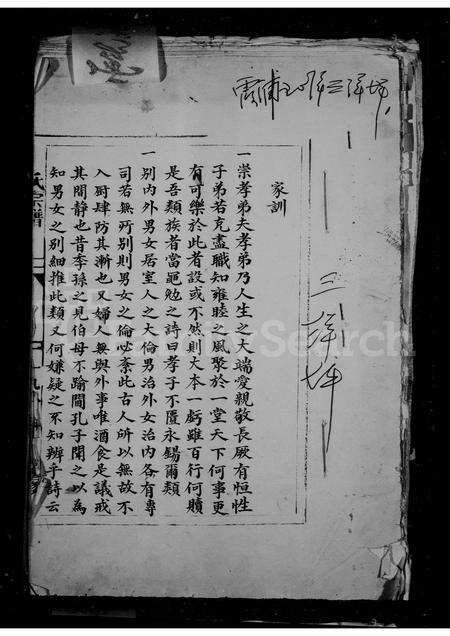 家訓
一崇孝弟夫孝弟乃人生之大端愛親敬長厥有恒性
子弟若克盡職知雍睦之風聚於一堂天下何事更
有可樂於此者設或不然則大本一虧雖百行何贖
是吾類族者當黽勉之詩曰孝子不匱永錫爾類
一別內外男女居室人之大倫男治外女治內各有專
司若無所別則男女之倫必紊此古人所以無故不
入厨肆防其漸也又婦人無與外事唯酒食是議戒
其閒靜也昔李孫之見伯母不踰閾孔子聞之以為
知男女之別細推此類又何嫌疑之不知辨乎詩云
氏宗譜
三洋坪